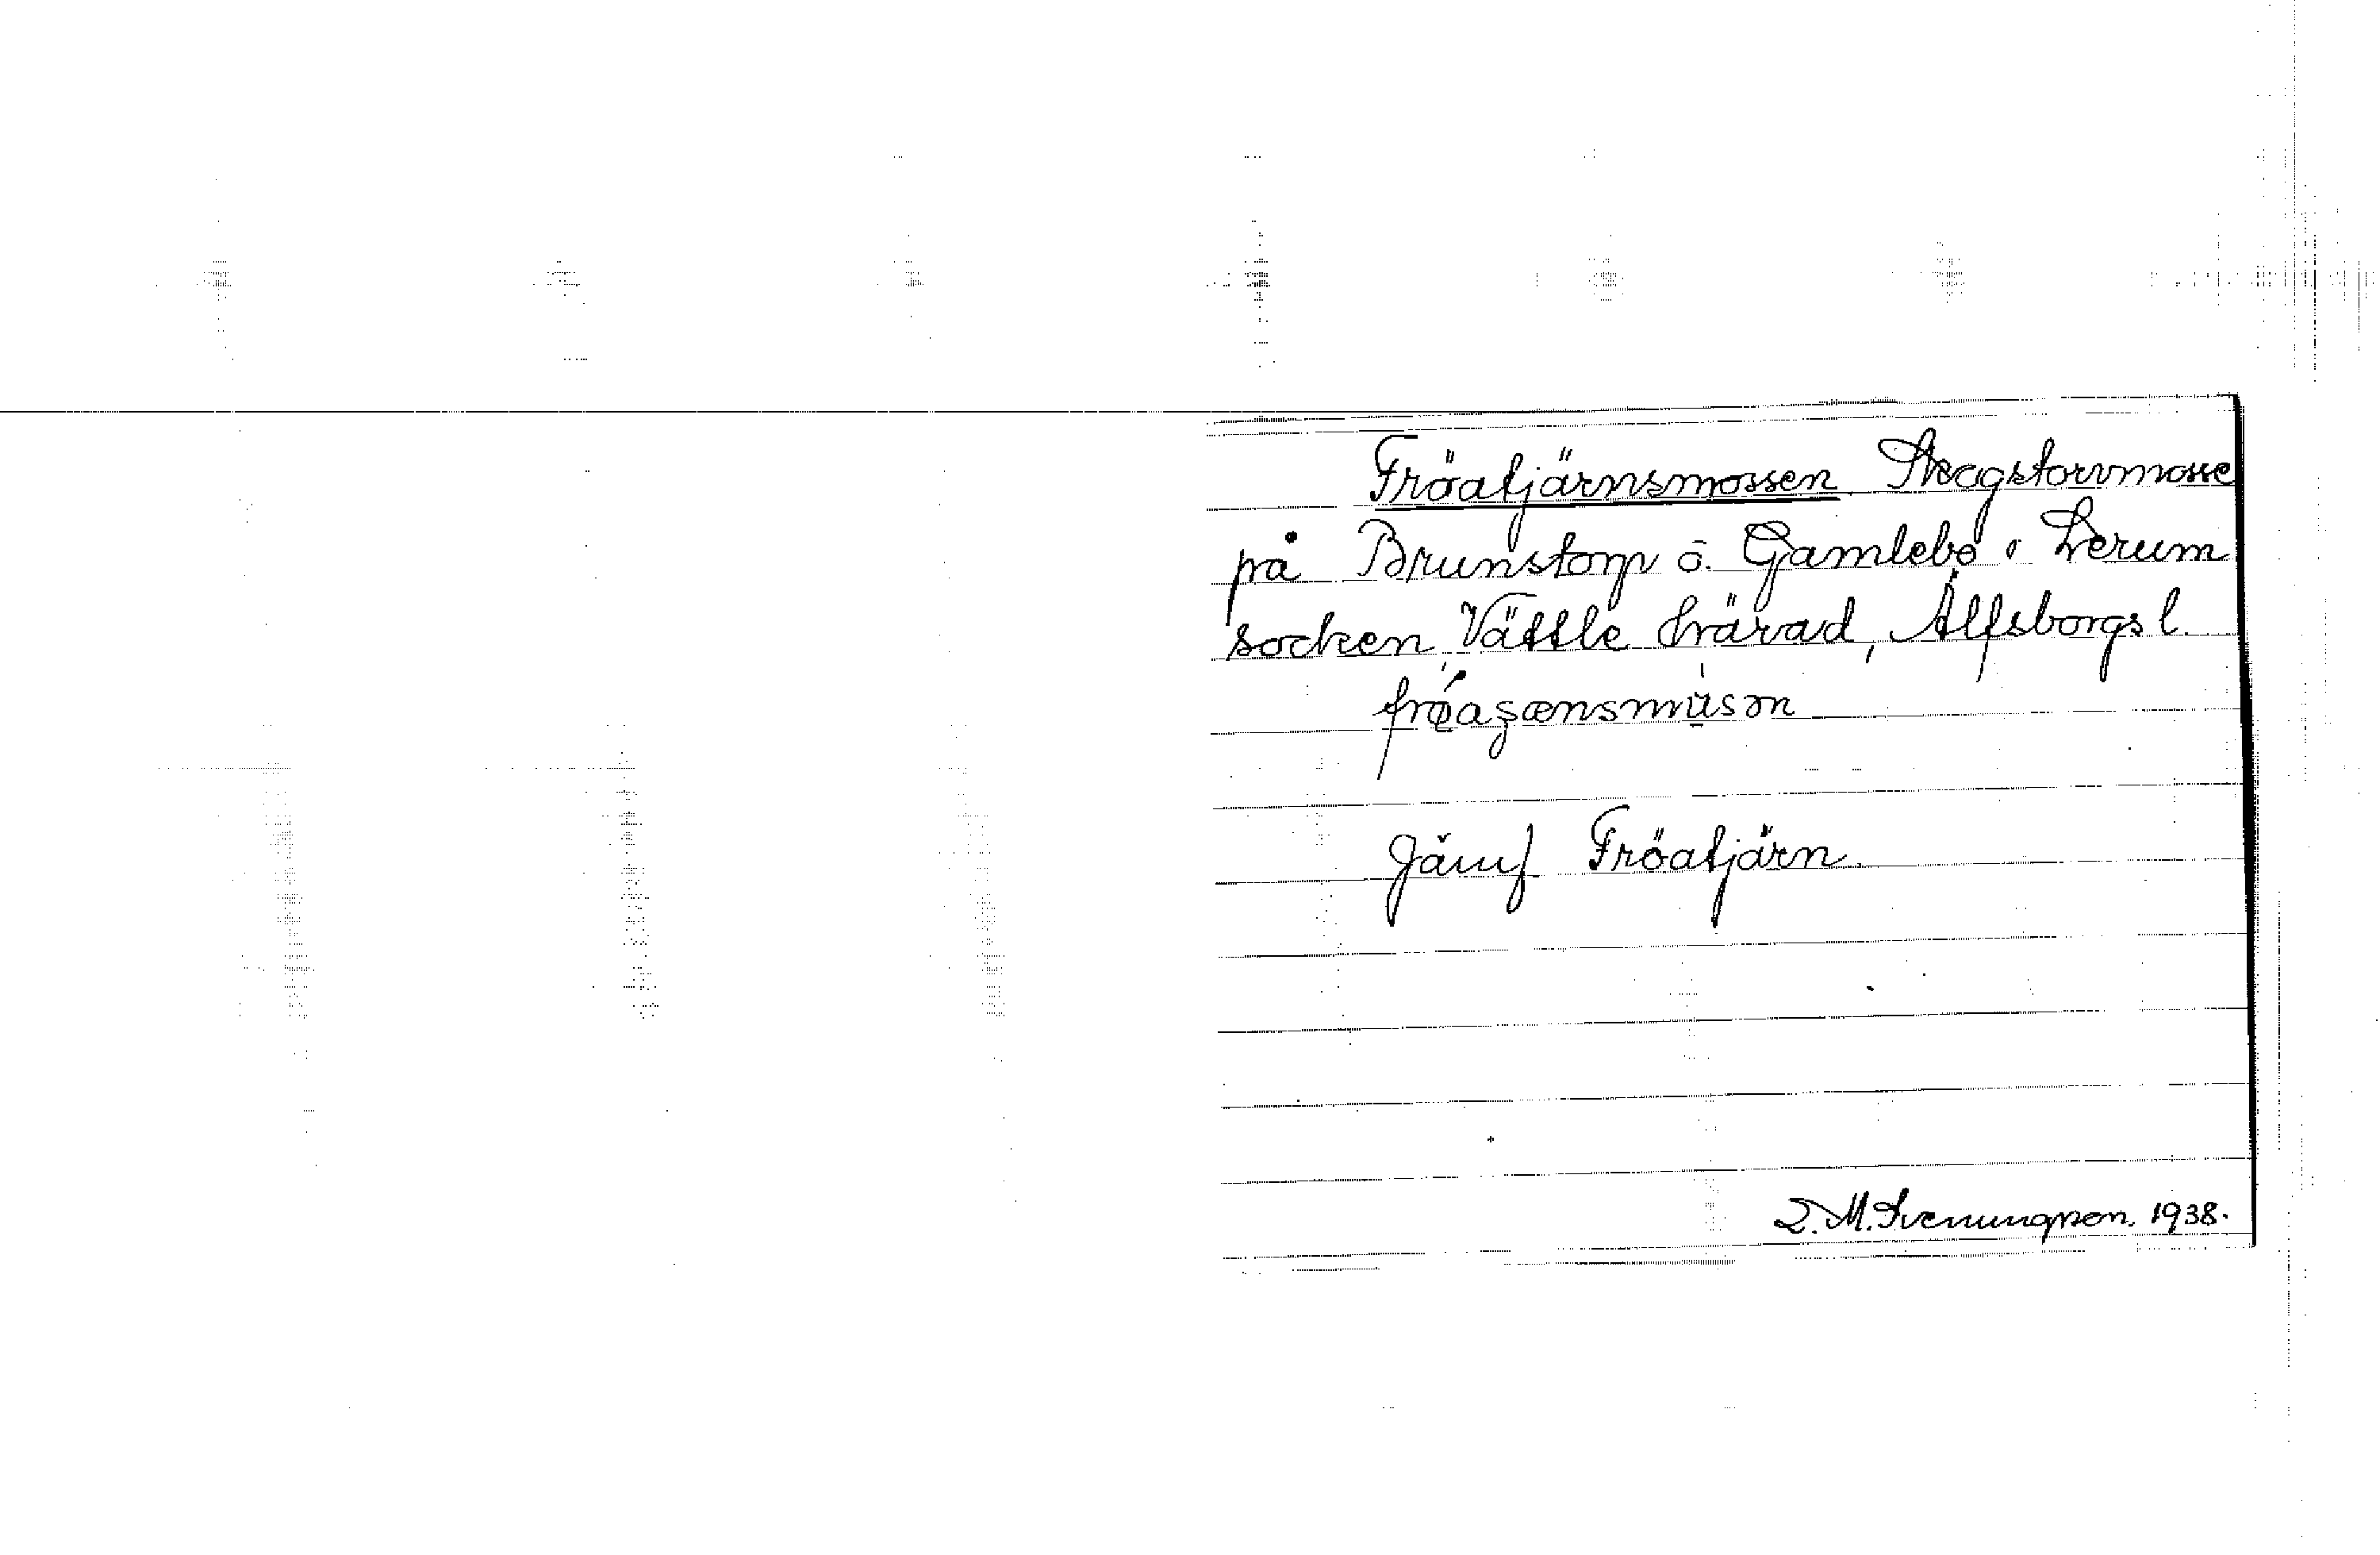 Fröatjärnsmossen Skogstorvmosse
på Brunstorp o. Gamlebo i Lerum
socken, Vättle härad, Älfsborgs l.
Jämf Fröatjärn.
M. Svenungson. 1938.